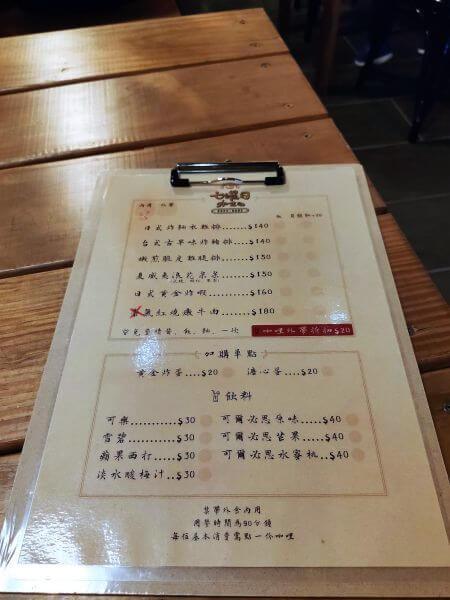 七曜日
內用 外帶
日式炸麵衣雞排......$140
台式古早味炸豬排......$140
嫩煎脆皮雞腿排......$150
夏威夷浪花朵朵......$150
日式黃金炸蝦......$160
人氣紅燒嫩牛肉......$180
咖哩外帶折扣$20
加購單點
黃金炸蛋....$20 溏心蛋....$20
飲料
可樂......$30 可爾必思原味.....$40
雪碧......$30 可爾必思芒果....$40
蘋果西打....$30 可爾必思水蜜桃..$40
淡水酸梅汁..$30
禁帶外食內用
用餐時間為90分鐘
每位基本消費需點一份咖哩